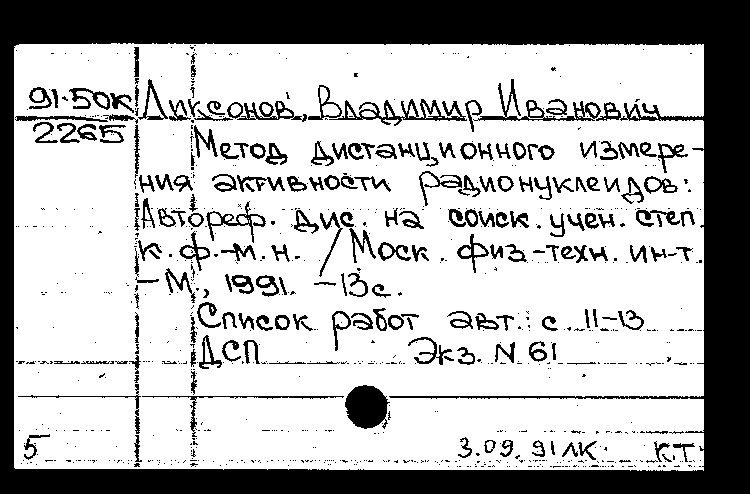 91-50К Ликсонов, Владимир Иванович
2265
Метод дистанционного измере-
ния активности радионуклеидов:
Автореф. дис. на соиск. учен. степ.
к. ф.-м. н. / Моск. физ-техн. ин-т.
– М., 1991. – 13 с.
Список работ авт.: с. 11-13
ДСП Экз. N 61
5 3.09.91 ЛК КТ